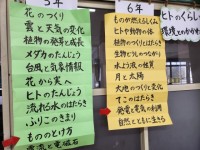 5年
花のつくり
雲と天気の変化
植物の発芽と成長
メダカのたんじょう
台風と気象情報
花から実へ
ヒトのたんじょう
流れる水のはたらき
ふりこのきまり
もののとけ方
電流と電磁石
6年
ものが燃えるしくみ
ヒトや動物の体
植物のつくりとはたらき
生物どうしのつながり
水よう液の性質
月と太陽
大地のつくりと変化
てこのはたらき
発電と電気の利用
自然とともに生きる
ヒトのくらしと
環境とのかかわ